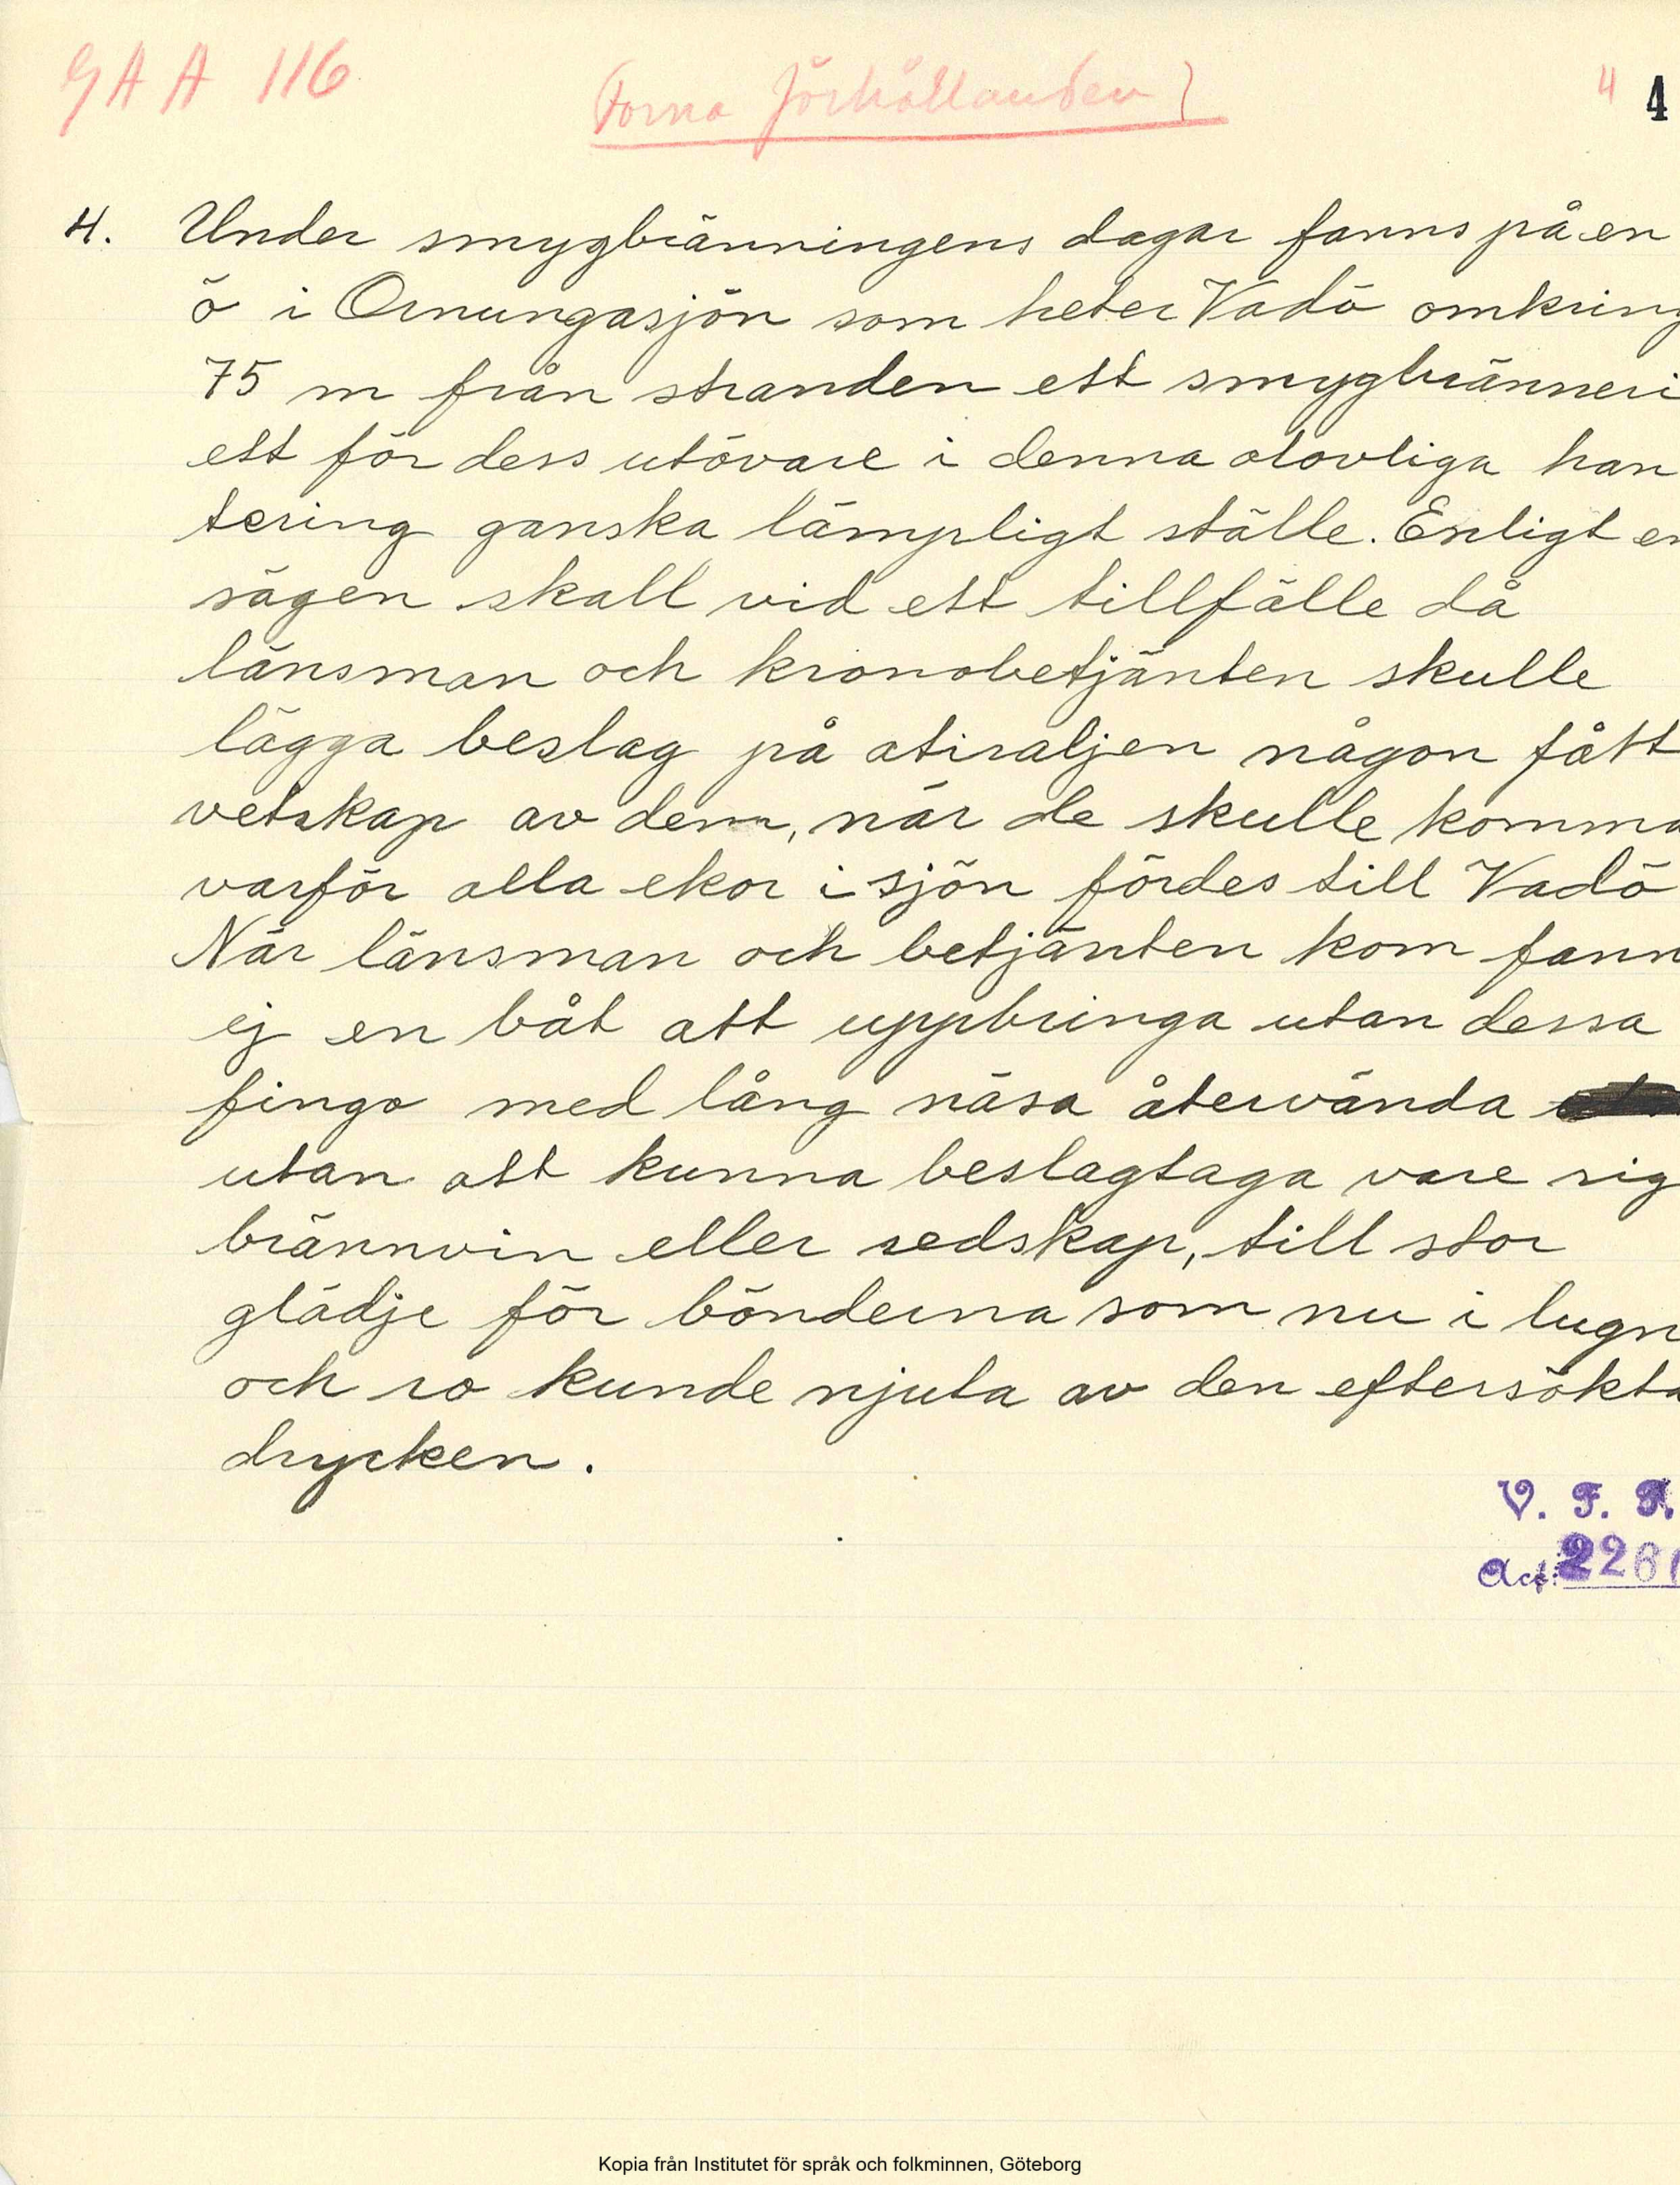 GAA 116
Forna förhållanden
4 4
4. Under smygbränningens dagar fanns på en
ö i Ornungasjön som heter Vadö omkring
75 m från stranden ett smygbränneri
ett för dess utövare i denna olovliga han
tering ganska lämpligt ställe. Enligt en
sägen skall vid ett tillfälle då
länsman och kronobetjänten skulle
lägga beslag på atiraljen någon fått
vetskap av dem, när de skulle komma
varför alla ekor i sjön fördes till Vadö
När länsman och betjänten kom fanns
ej en båt att uppbringa utan dessa
fingo med lång näsa återvända
utan att kunna beslagtaga vare sig
brännvin eller redskap, till stor
glädje för bönderna som nu i lugn
och ro kunde njuta av den eftersökta
drycken.
V. F. F.
Acc:
Kopia från Institutet för språk och folkminnen, Göteborg